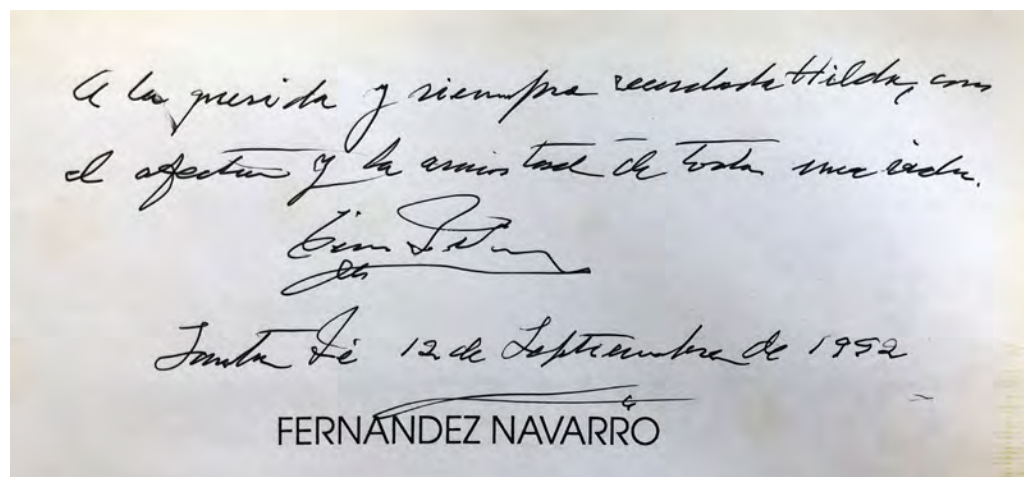 A la querida y siempre recordada Hilda, con
el afecto y la amistad de toda una vida.
Santa Fé 12 de Septiembre de 1992
FERNÁNDEZ NAVARRO